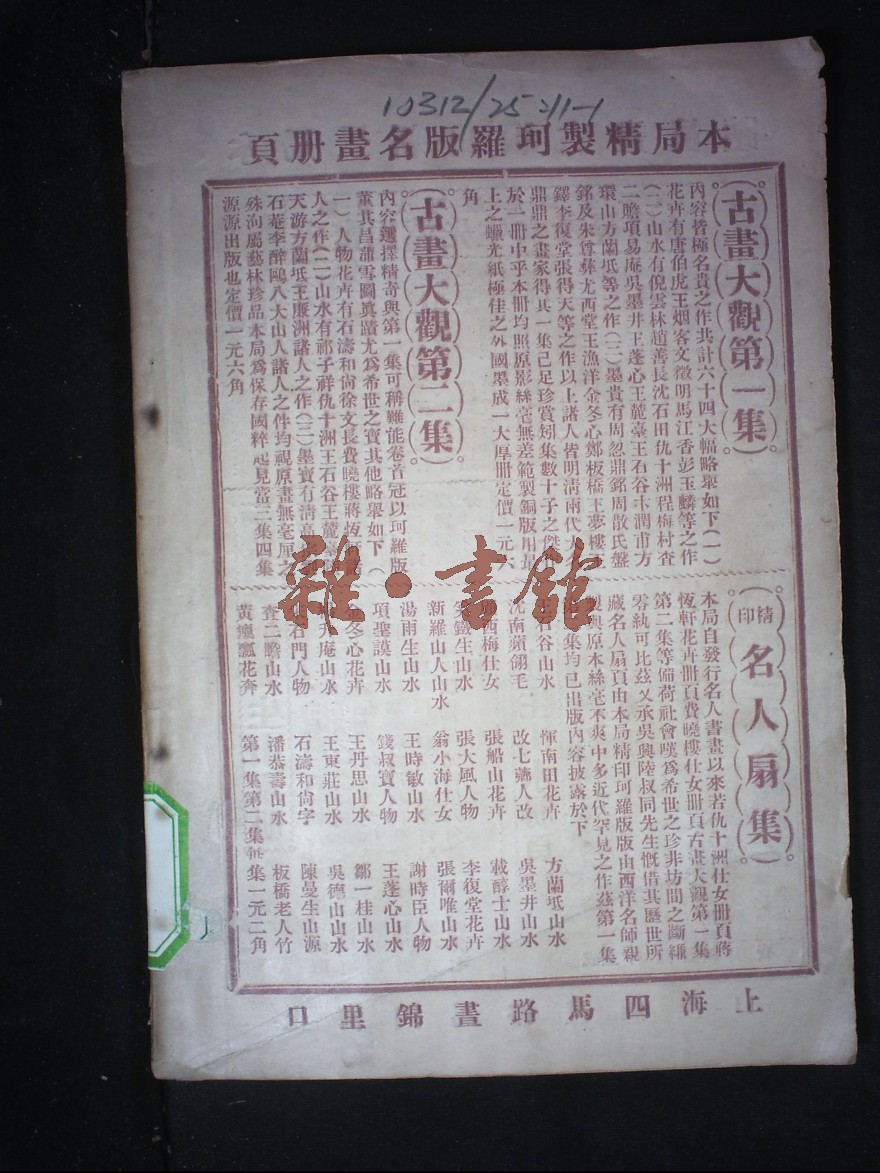 10312/25:11-1
本局精製珂羅版名畫册頁
古畫大觀第一集
內容皆極名貴之作共計六十四大幅略舉如下(一)
花卉有唐伯虎王烟客文徵明馬江香彭玉麟等之作
(二)山水有倪雲林趙善長沈石田仇十洲程梅村查
二瞻項易庵吳墨井王蓬心王麓臺王石谷卞潤甫方
環山方蘭坻等之作(三)墨貴有周忽鼎銘周散氏盤
銘及朱尊彝尤西堂王漁洋金冬心鄭板橋王夢樓
鐸李復堂張得天等之作以上諸人皆明淸兩代大
鼎鼎之畫家得其一集已足珍賞矧集數十子之傑作
於一册中乎本册均照原影絲毫無差範製銅版用最
上之蠟光紙極佳之外國墨成一大厚册定價一元六
角
古畫大觀第二集
內容選擇精奇與第一集可稱難能卷首冠以珂羅版
董其昌蒲雪圖眞蹟尤爲希世之寶其他略舉如下(
一)人物花卉有石濤和尙徐文長費曉樓蔣恆軒
人之作(二)山水有祁子祥仇十洲王石谷王麓臺
天游方蘭坻王廉洲諸人之作(三)墨寶有淸高
石菴李醉鷗八大山人諸人之件均視原畫無毫厘之
殊洵屬藝林珍品本局爲保存國粹起見當三集四集
源源出版也定價一元六角
精印名人扇集
本局自發行名人書畫以來若仇十洲仕女册頁蔣
恆軒花卉册頁費曉樓仕女册頁古畫大觀第一集
第二集等備荷社會嘆爲希世之珍非坊間之斷縑
零紈可比茲又承吳興陸叔同先生慨借其歷世所
藏名人扇頁由本局精印珂羅版版由西洋名師親
製與原本絲毫不爽中多近代罕見之作茲第一集
集均已出版內容披露於下
石谷山水
惲南田花卉
方蘭坻山水
沈南蘋翎毛
改七薌人改
吳墨井山水
西梅仕女
張船山花卉
載醇士山水
鐵生山水
張大風人物
李復堂花卉
新羅山人山水
翁小海仕女
張爾唯山水
湯雨生山水
王時敏山水
謝時臣人物
項聖謨山水
錢叔寶人物
王蓬心山水
金冬心花卉
王丹思山水
鄒一桂山水
庵山水
王東莊山水
吳德山山水
石門人物
石濤和尙字
陳曼生山源
查二瞻山水
潘恭壽山水
板橋老人竹
黃癭瓢花卉
第一集第二集每集一元二角
上海四馬路晝錦里口
雜·書館